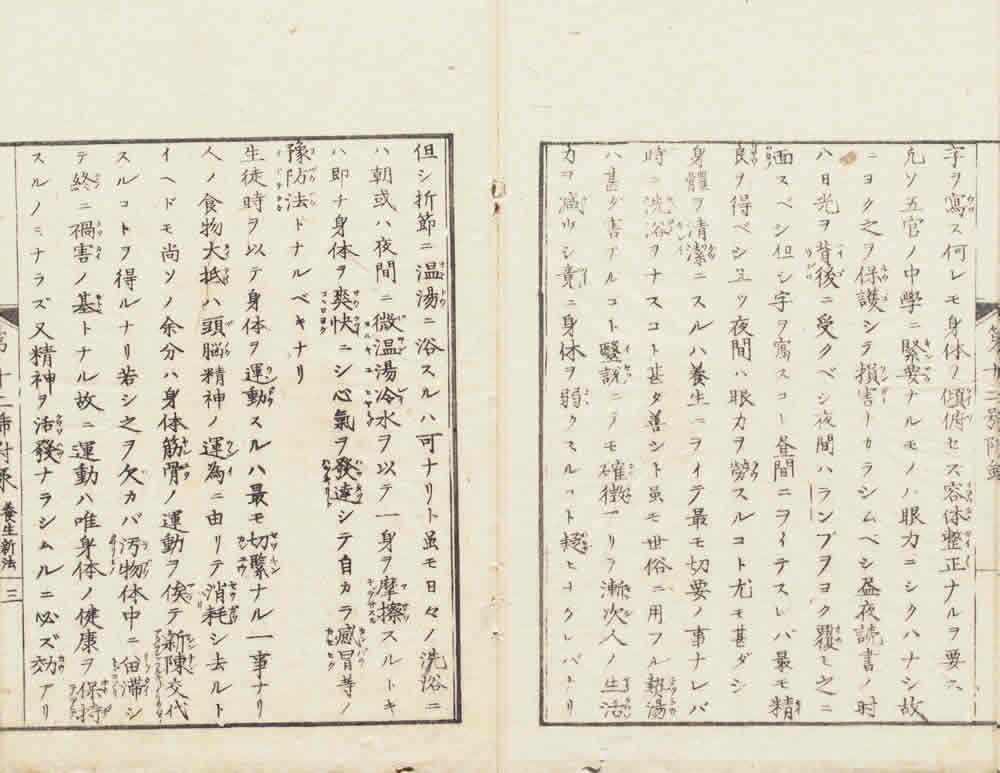 字ヲ寫ス何レモ身体ノ傾俯セス容体整正ナルヲ要ス
凡ソ五官ノ中學ニ緊要ナルモノハ眼力ニシクハナシ故
ニヨク之ヲ保護シテ損害ナカラシムベシ昼夜読書ノ時
ハ日光ヲ背後ニ受クベシ夜間ハランプヲヨク覆ヒ之ニ
面スベシ但シ字ヲ寫スコハ昼間ニヲイテスレバ最モ精
良ヲ得ベシ且ツ夜間ハ眼力ヲ勞スルコト尤モ甚ダシ
身體ヲ清潔ニスルハ養生ニヲイテ最モ切要ノ事ナレバ
時ニ洗浴ヲナスコト甚タ善シト虽モ世俗ニ用フル熱湯
ハ甚ダ害アルコト醫説ニテモ確徴アリテ漸次人ノ生活
力ヲ减ツシ竟ニ身体ヲ弱クスルコト
但シ折節ニ温湯ニ浴スルハ可ナリト虽モ日々ノ洗浴ニ
ハ朝或ハ夜間ニ微温湯冷水ヲ以テ一身ヲ摩擦スルトキ
ハ即チ身体ヲ爽快ニシ心氣ヲ發達シテ自カラ感冒等ノ
豫防法トナルベキナリ
生徒時ヲ以テ身体ヲ運動スルハ最モ切緊ナル一事ナリ
人ノ食物大抵ハ頭脳精神ノ運為ニ由リテ消耗シ去ルト
イヘドモ尚ソノ余分ハ身体筋骨ノ運動ヲ俟テ新陳交代
スルコトヲ得ルナリ若シ之ヲ欠カバ汚物体中ニ留滞シ
テ終ニ禍害ノ基トナル故ニ運動ハ唯身体ノ健康ヲ保持
スルノミナラズ又精神ヲ活發ナラシムルニ必ズ効アリ
養生新法
三